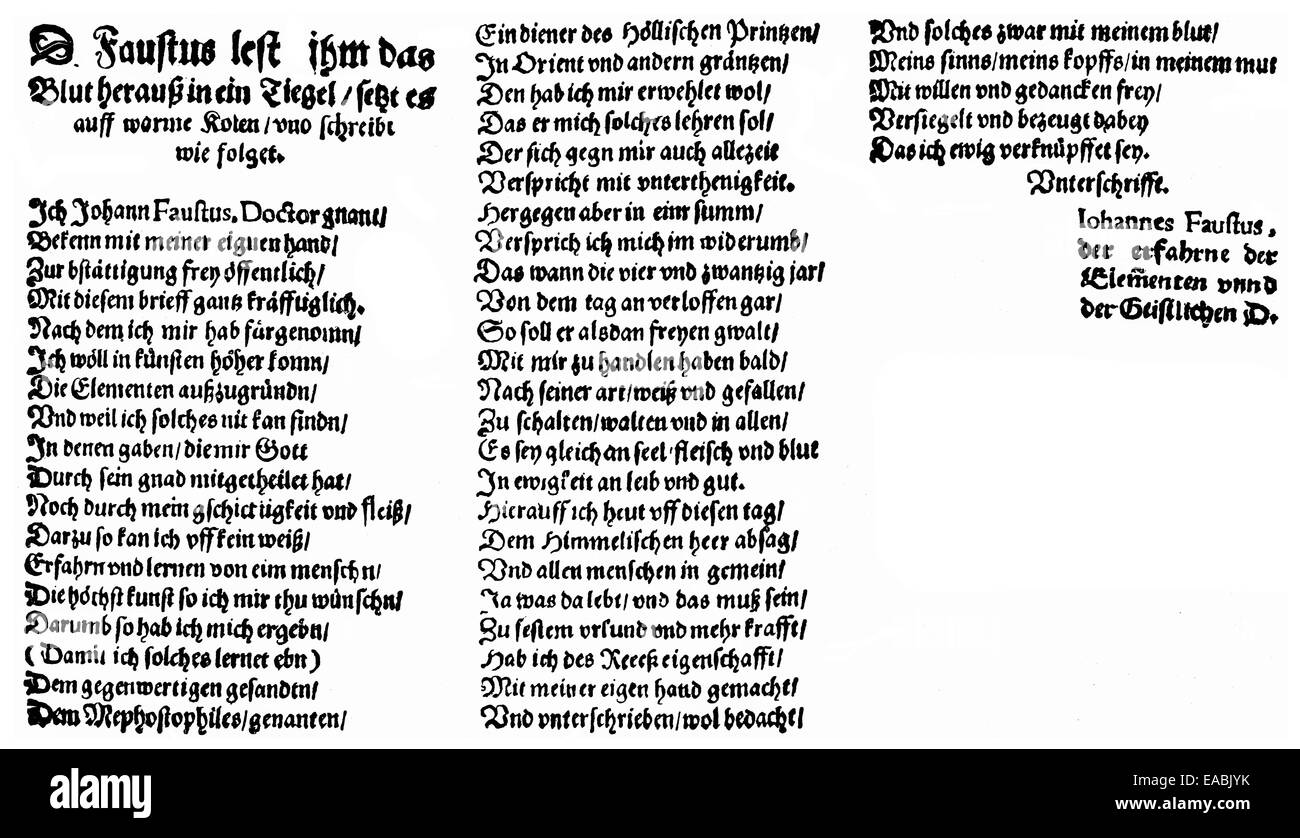 D. Faustus lest ihm das
Blut herauß in ein Tiegel / setzt es
auff warme Kolen / vnd schreibt
wie folget.
Ich Johann Faustus, Doctor gnant /
Bekenn mit meiner eignen hand /
Zur bstättigung frey öffentlich /
Mit diesem brieff gantz kräfftiglich.
Nach dem ich mir hab fürgenomn /
Ich wöll in künsten höher komn /
Die Elementen außzugründn /
Vnd weil ich solches nit kan findn /
In denen gaben / die mir Gott
Durch sein gnad mitgetheilet hat /
Noch durch mein gschicktigkeit vnd fleiß /
Darzu so kan ich vff kein weiß /
Erfahrn vnd lernen von eim menschn /
Die höchst kunst so ich mir thu wünschn /
Darumb so hab ich mich ergebn /
(Damit ich solches lernet ebn)
Dem gegenwertigen gesandtn /
Dem Mephostophiles / genanten /
Ein diener des Höllischen Printzen /
In Orient vnd andern gräntzen /
Den hab ich mir erwehlet wol /
Das er mich solches lehren sol /
Der sich gegn mir auch allezeit
Verspricht mit vnterthenigkeit.
Hergegen aber in einr summ /
Versprich ich mich im widerumb /
Das wann die vier vnd zwantzig jar /
Von dem tag an verloffen gar /
So soll er alsdan freyen gwalt /
Mit mir zu handlen haben bald /
Nach seiner art / weiß vnd gefallen /
Zu schalten / walten vnd in allen /
Es sey gleich an seel / fleisch vnd blut
In ewigkeit an leib vnd gut.
Hierauff ich heut vff diesen tag /
Dem Himmelischen heer absag /
Vnd allen menschen in gemein /
Ja was da lebt / vnd das muß sein /
Zu festem vrkund vnd mehr krafft /
Hab ich des Receß eigenschafft /
Mit meiner eigen hand gemacht /
Vnd vnterschrieben / wol bedacht /
Vnd solches zwar mit meinem blut /
Meins sinns / meins kopffs / in meinem mut
Mit willen vnd gedancken frey /
Versiegelt vnd bezeugt dabey
Das ich ewig verknüpffet sey.
Vnterschrifft.
Iohannes Faustus,
der erfahrne der
Elem̃enten vnnd
der Geistlichen D.
alamy stock photo
EABJYK
www.alamy.com